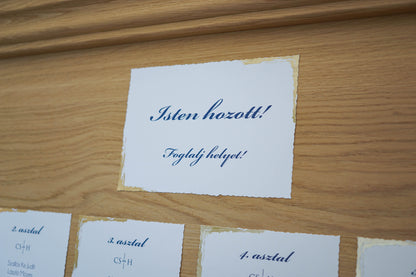 Isten hozott!
Foglalj helyet!
2. asztal
CS H
3. asztal
CS H
4. asztal
CS H